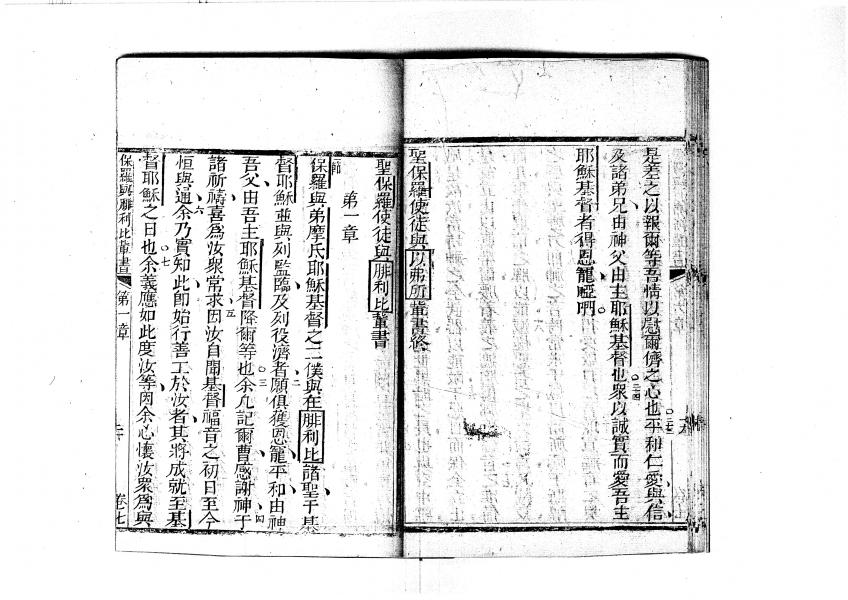 是差之以報爾等吾情以慰爾儕之心也平和仁愛與信
及諸弟兄由神父由主耶穌基督也衆以誠實而愛吾主
耶穌基督者得恩寵啞唎
聖保羅使徒與以弗所軰書終
聖保羅使徒與腓利比軰書
第一章
保羅與弟摩氏耶穌基督之二僕與在腓利比諸聖于基
督耶穌並與列監臨及列役濟者願俱獲恩寵平和由神
吾父由吾主耶穌基督降爾等也余凢記爾曹感謝神于
諸祈禱喜爲汝衆常求因汝自聞基督福音之初日至今
恒與通余乃實知此卽始行善工於汝者其將成就至基
督耶穌之日也余義應如此度汝等因余心懷汝衆爲與
保羅與腓利比軰書 第一章 卷七